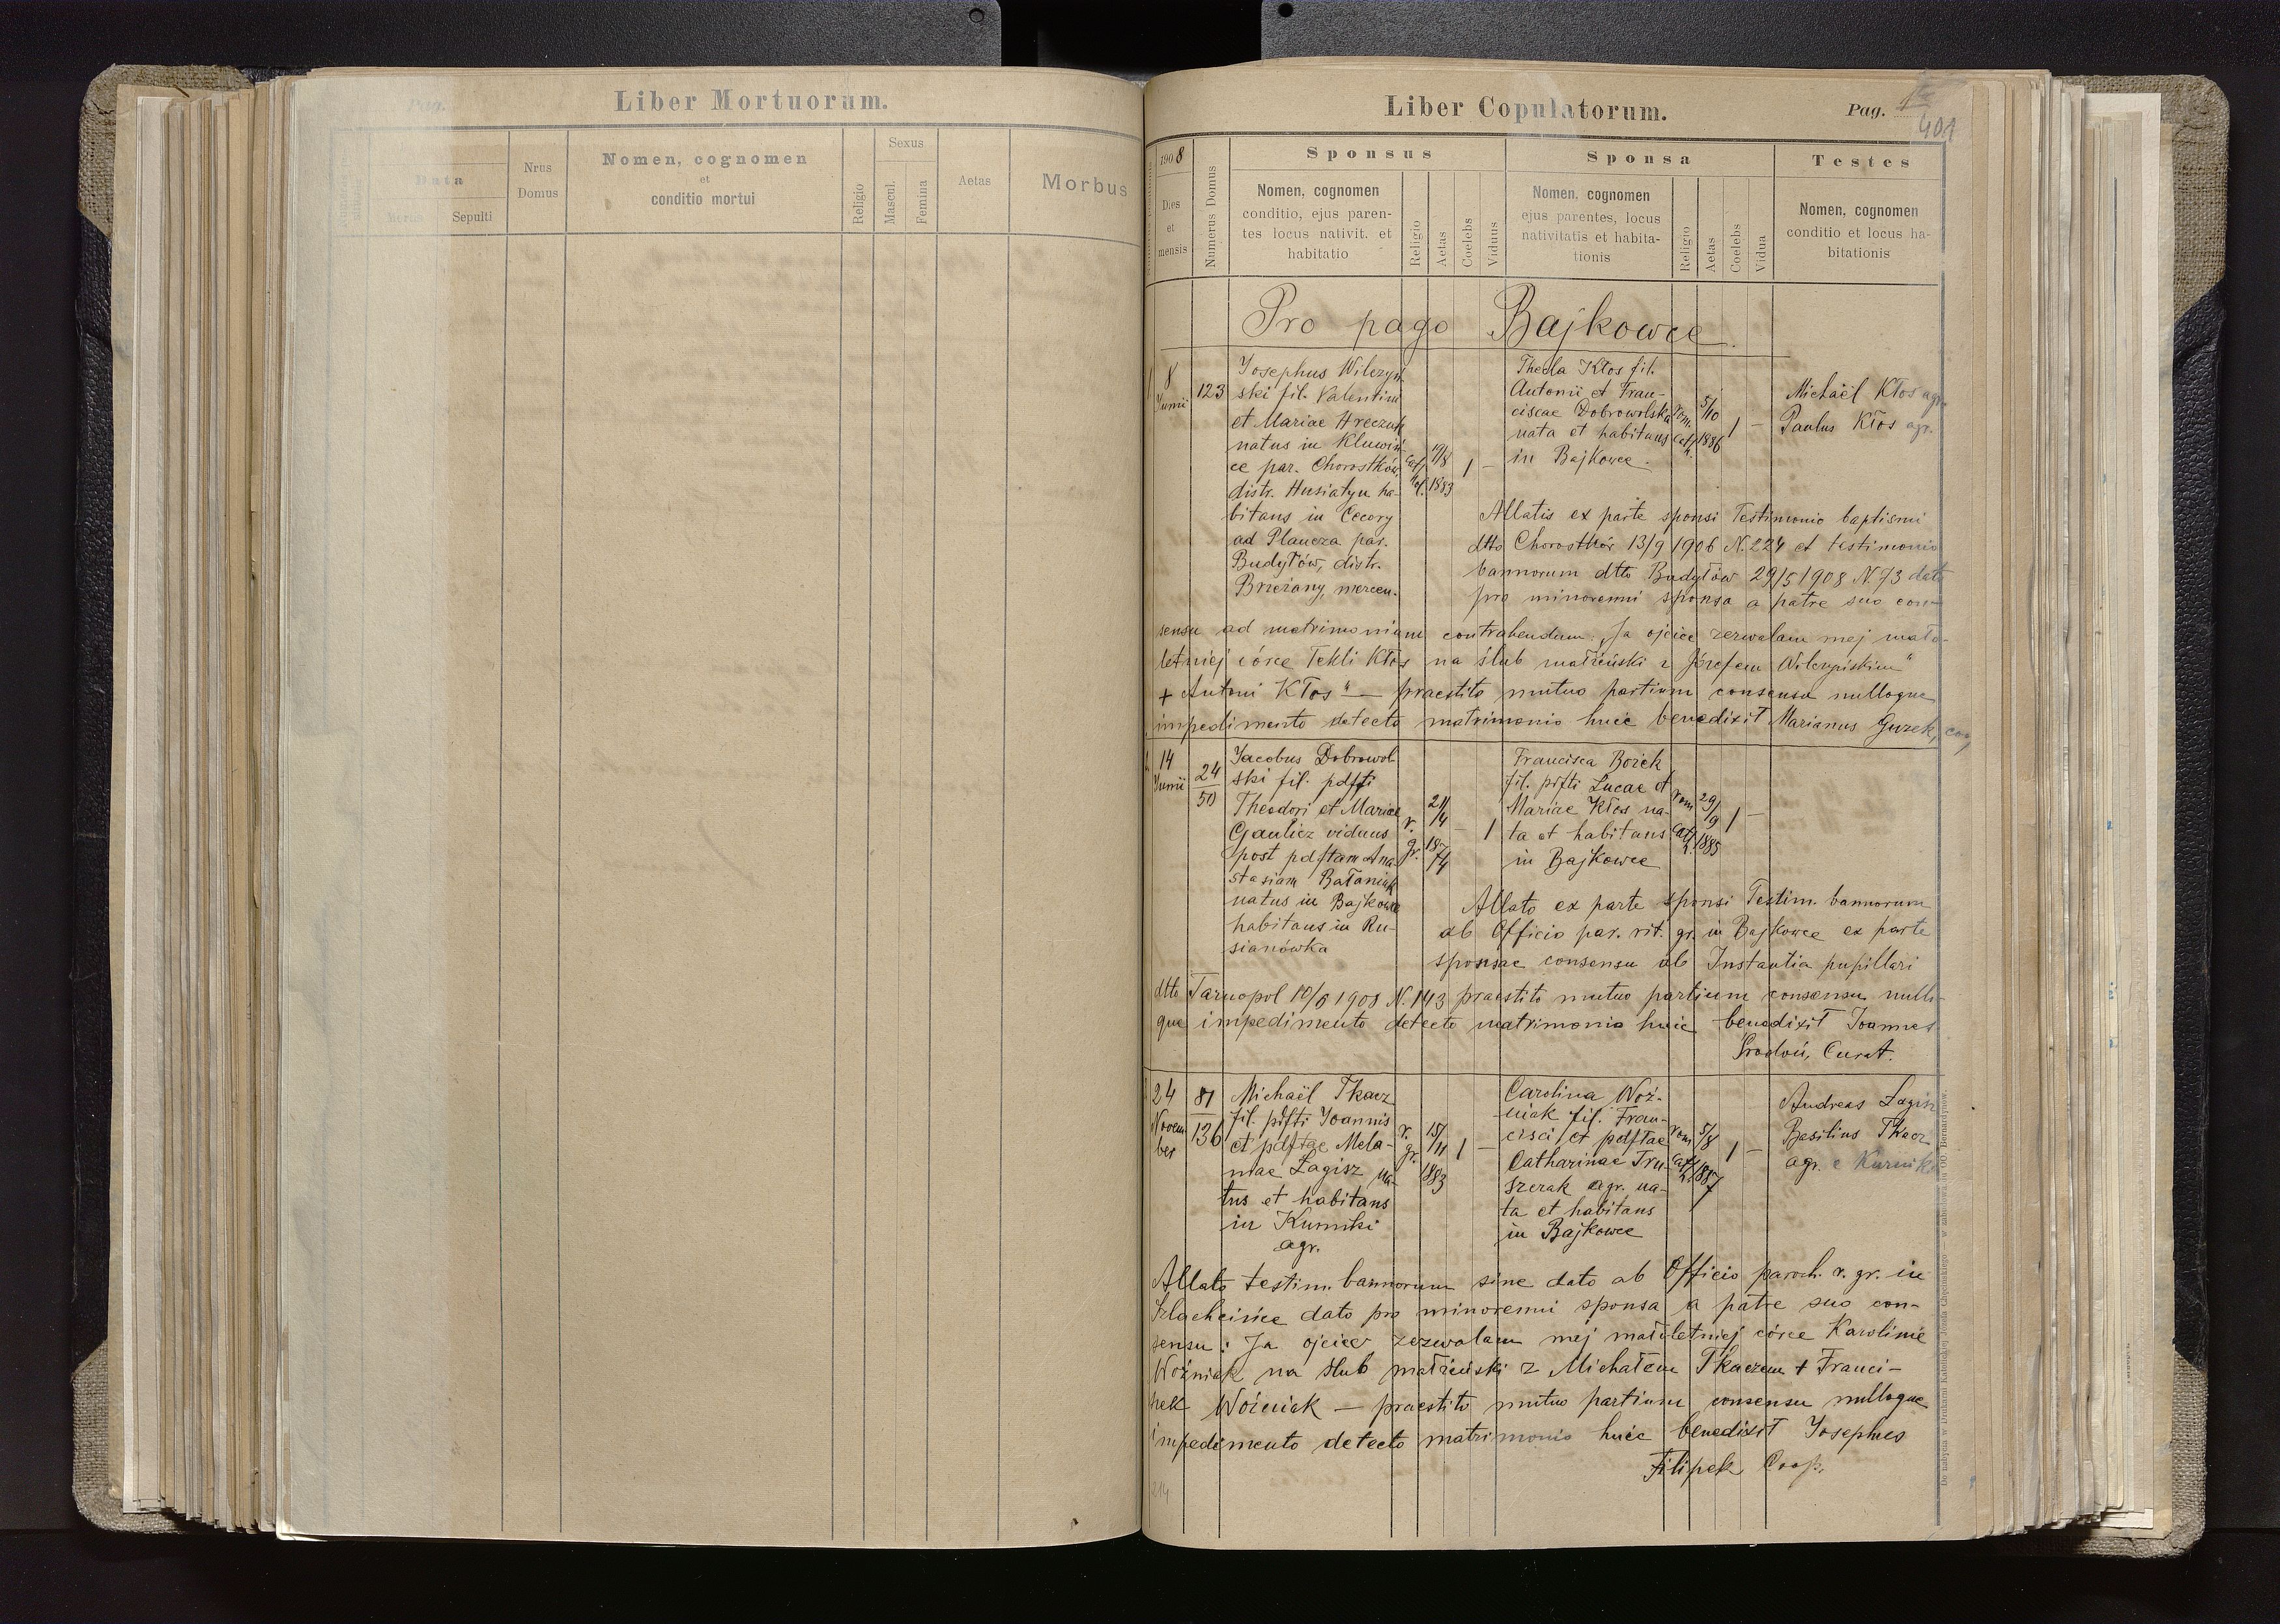 Pag.
Liber Mortuorum.
Data
Mortis
Sepulti
Nrus
Domus
Nomen, cognomen
et
conditio mortui
Religio
Sexus
Mascul.
Femina
Aetas
Morbus
Liber Copulatorum.
Pag.
401
1908
Dies
et
mensis
Numerus Domus
Sponsus
Nomen, cognomen
conditio, ejus paren-
tes locus nativit. et
habitatio
Religio
Aetas
Coelebs
Viduus
Sponsa
Nomen, cognomen
ejus parentes, locus
nativitatis et habita-
tionis
Religio
Aetas
Coelebs
Vidua
Testes
Nomen, cognomen
conditio et locus ha-
bitationis
Pro pago Bajkowce.
8
Junii
123
Josephus Wilczyń-
ski fil. Valentini
et Mariae Hreczuk
natus in Kluwiń-
ce par. Chorostków
distr. Husiatyn ha-
bitans in Cecory
ad Plaucza par.
Budyłów, distr.
Brzeżany, mercen.
19/8
1883
1 –
Thecla Kłos fil.
Antonii et Fran-
ciscae Dobrowolska
nata et habitans
in Bajkowce.
rom.
cath.
5/10
1886
1 –
Michaël Kłos agr.
Paulus Kłos agr.
Allatis ex parte sponsi Testimonio baptismi
dtto Chorostków 13/9 1906 N. 224 et testimonio
bannorum dtto Budyłów 29/5 1908 N. 73 dato
pro minorenni sponsa a patre suo con-
sensu ad matrimonium contrahendum: „Ja ojciec zezwalam mej mało-
letniej córce Tekli Kłos na ślub małżeński z Józefem Wilczyńskim"
+ Antoni Kłos" — praestito mutuo partium consensu nulloque
impedimento detecto matrimonio huic benedixit Marianus Guzek, coop.
14
Junii
24
50
Jacobus Dobrowol-
ski fil. pdfti
Theodori et Mariae
Gaulicz viduus
post pdftam Ana-
stasiam Bałaniuk
natus in Bajkowce
habitans in Ru-
sianówka
r.
gr.
21/4
1874
– 1
Francisca Bożek
fil. pdfti Lucae et
Mariae Kłos na-
ta et habitans
in Bajkowce
rom
cath.
29/9
1885
1 –
Allato ex parte sponsi Testim. bannorum
ab Officio par. rit. gr. in Bajkowce ex parte
sponsae consensu ab Instantia pupillari
dtto Tarnopol 10/6 1908 N. 143 praestito mutuo partium consensu nullo-
que impedimento detecto matrimonio huic benedixit Joannes
Środoń, Curat.
24
Novem
ber
81
136
Michaël Tkacz
fil. pdfti Joannis
et pdftae Mela-
niae Łagisz na-
tus et habitans
in Kurniki
agr.
r.
gr.
15/11
1883
1 –
Carolina Woź-
niak fil. Fran-
cisci et pdftae
Catharinae Tru-
szerak agr. na-
ta et habitans
in Bajkowce
rom
cath.
5/8
1887
1 –
Andreas Łagisz
Basilius Tkacz
agr. e Kurniki
Allato testim. bannorum sine dato ab Officio paroch. r. gr. in
Szlachcińce dato pro minorenni sponsa a patre suo con-
sensu: Ja ojciec zezwalam mej małoletniej córce Karolinie
Woźniak na ślub małżeński z Michałem Tkaczem + Franci-
szek Woźniak — praestito mutuo partium consensu nulloque
impedimento detecto matrimonio huic benedixit Josephus
Filipek Coop.
214